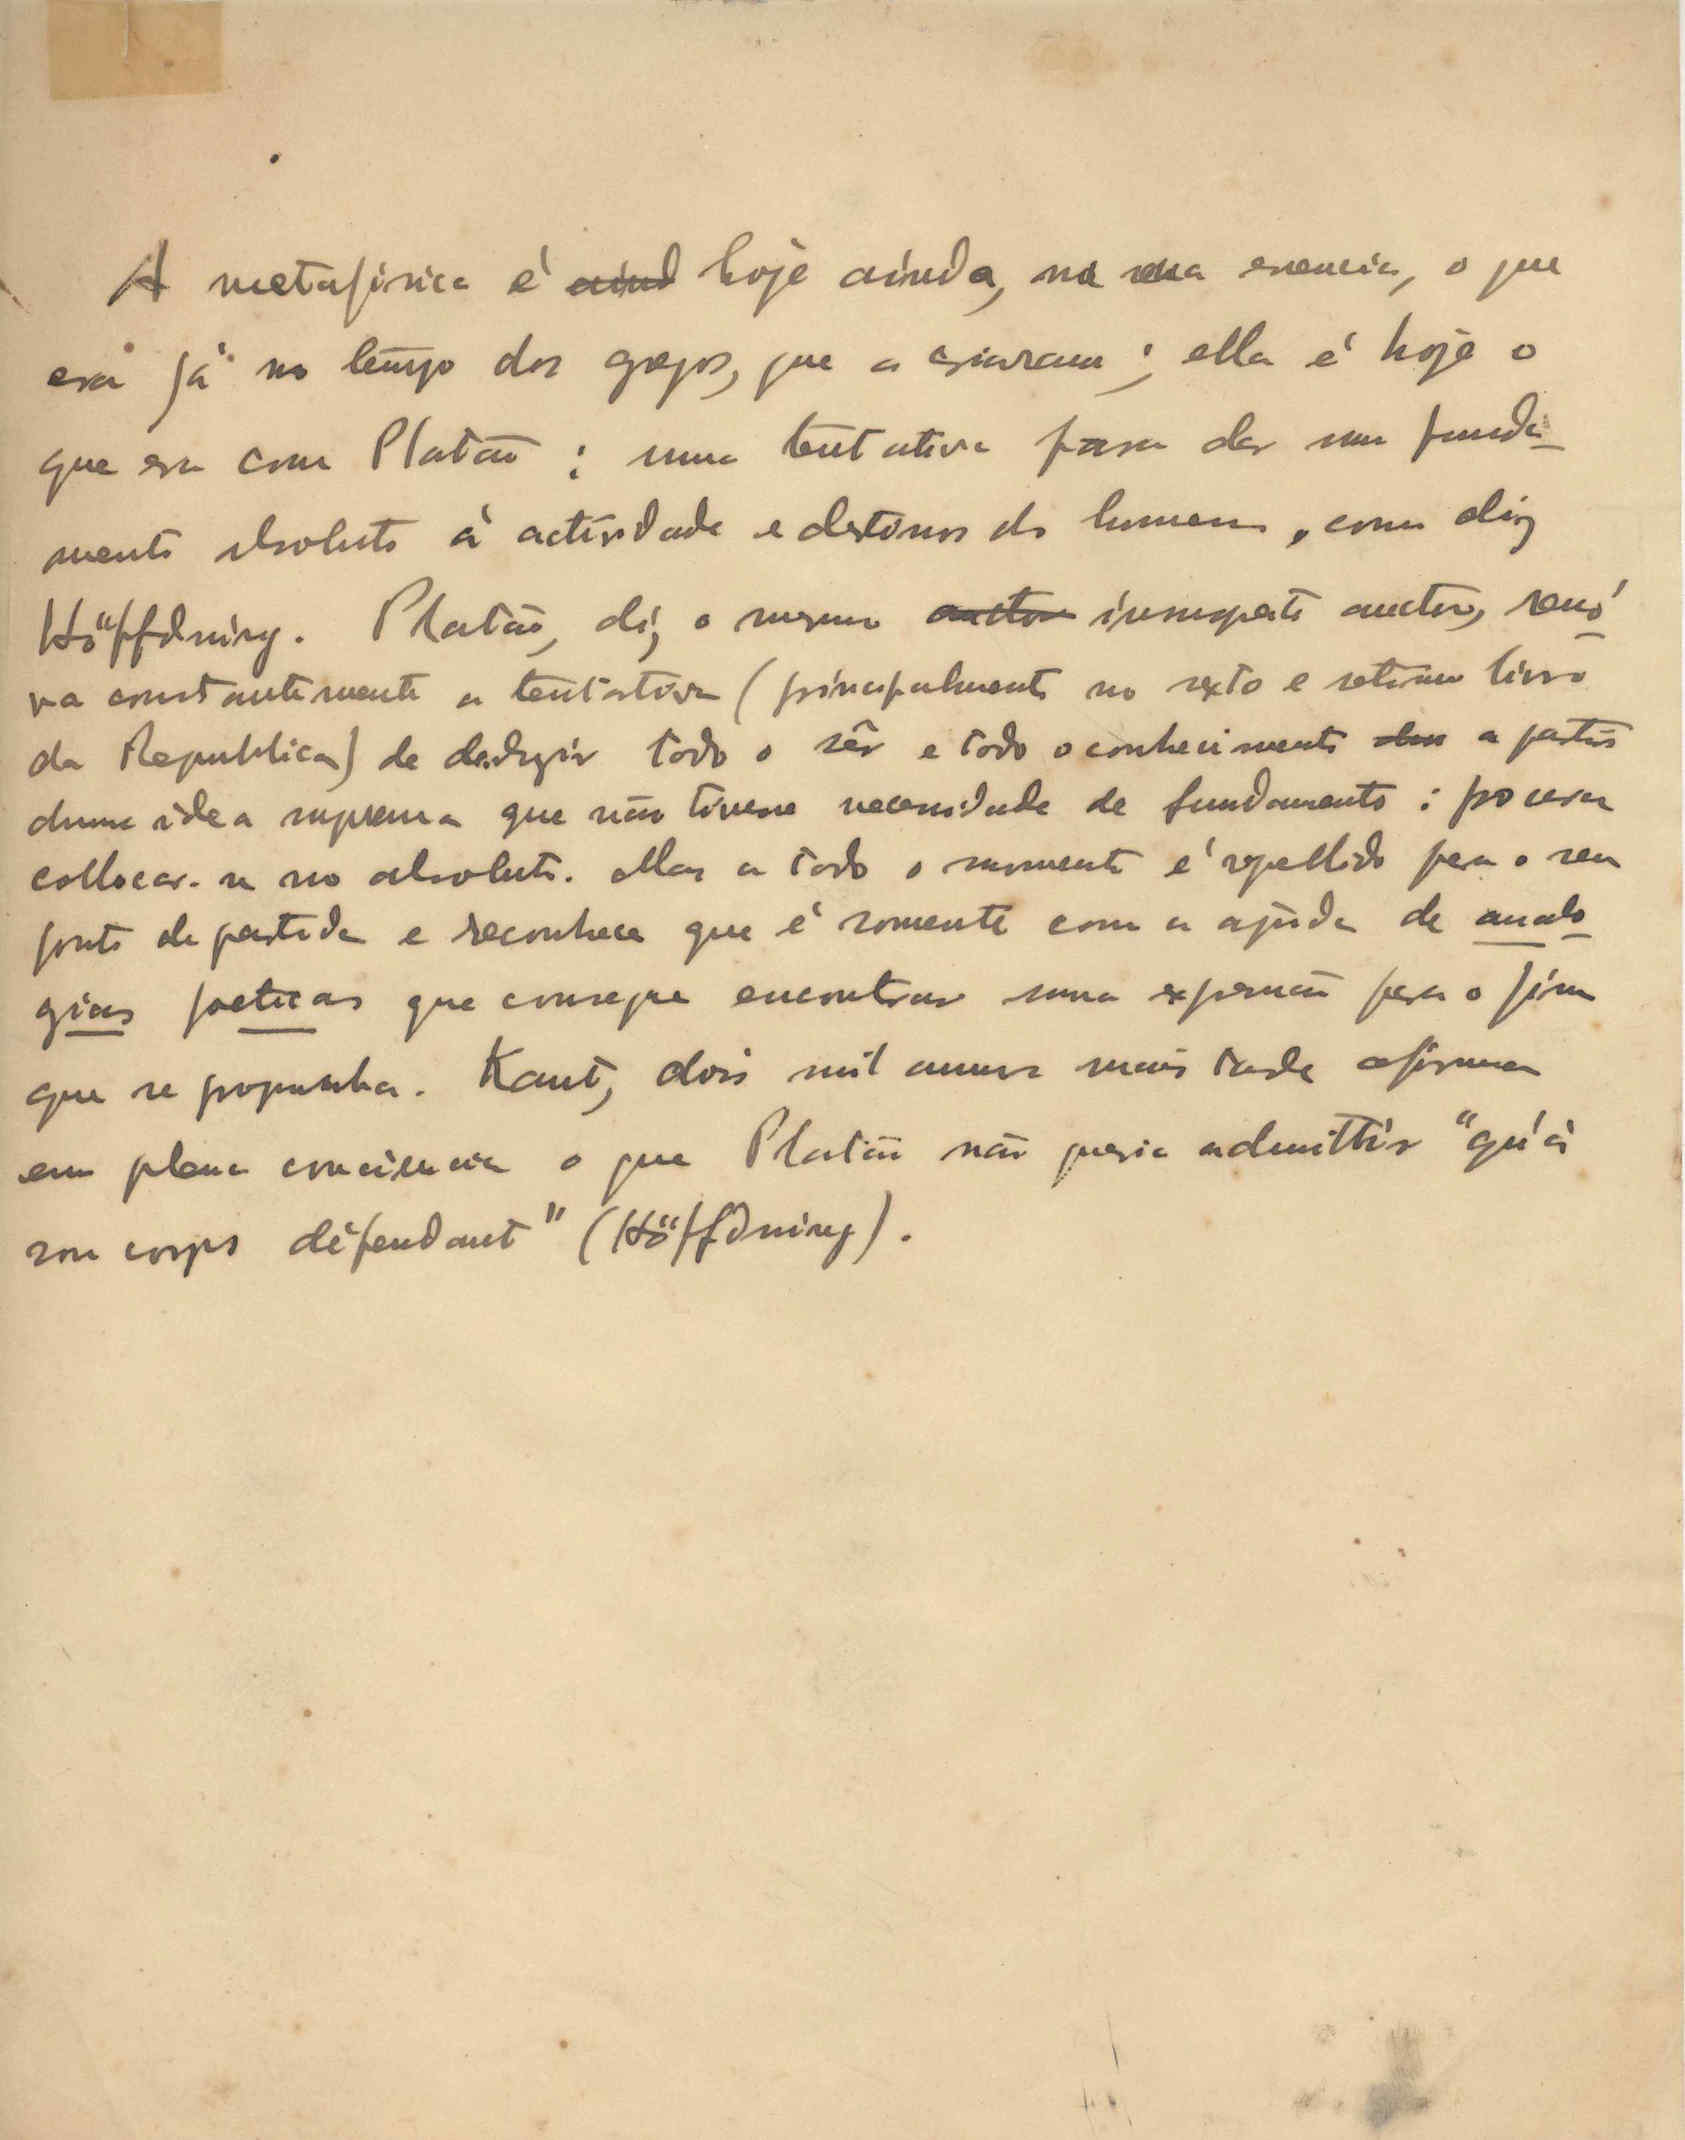 A metafisica é aind hoje ainda, na sua essencia, o que
era já no tempo dos gregos, que a criaram; ella é hoje o
que era com Platão: uma tentativa para dar um funda-
mento absoluto á actividade e destinos do homem, como diz
Höffdning. Platão, diz o mesmo auctor insuspeito auctor, renó-
va constantemente a tentativa (principalmente no sexto e setimo livro
da Republica) de deduzir todo o sêr e todo o conhecimento a partir
duma idea suprema que não tivesse necessidade de fundamento: procura
collocar-se no absoluto. Mas a todo o momento é repellido para o seu
ponto de partida e reconhece que é somente com a ajuda de analo-
gias poeticas que consegue encontrar uma expressão para o fim
que se propunha. Kant, dois mil annos mais tarde afirma
em plena consciencia o que Platão não queria admittir "qu'à
son corps défendant" (Höffdning).